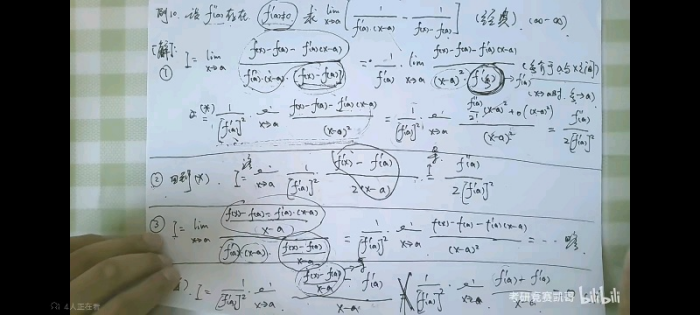 例10. 设 f''(a)存在 f'(a)≠0 求 lim x→a [ 1/(f'(a)·(x-a)) - 1/(f(x)-f(a)) ] (经典) (∞-∞)
[解]: ① I = lim x→a (f(x)-f(a)-f'(a)(x-a))/(f'(a)·(x-a)·(f(x)-f(a))) = 1/f'(a) · lim x→a (f(x)-f(a)-f'(a)(x-a))/((x-a)²·f'(ξ)) (ξ介于a与x之间) (x→a时, ξ→a)
(*) 1/[f'(a)]² x→a (f(x)-f(a)-f'(a)(x-a))/(x-a)² = 1/[f'(a)]² x→a (f''(a)/2! (x-a)²+o(x-a)²)/(x-a)² = f''(a)/2[f'(a)]²
② (*). I = x→a 1/[f'(a)]² (f'(x)-f'(a))/2(x-a) = f''(a)/2[f'(a)]²
③ I = lim x→a ((f(x)-f(a)-f'(a)·(x-a))/(x-a))/(f'(a)·(x-a)·(f(x)-f(a))/(x-a)) = 1/[f'(a)]² x→a (f(x)-f(a)-f'(a)(x-a))/(x-a)² = ... 略
I = 1/[f'(a)]² x→a ((f(x)-f(a))/(x-a) - f'(a))/(x-a) 1/[f'(a)]² x→a (f'(a)-f'(a))/(x-a)
4人正在看
考研竞赛凯哥 bilibili